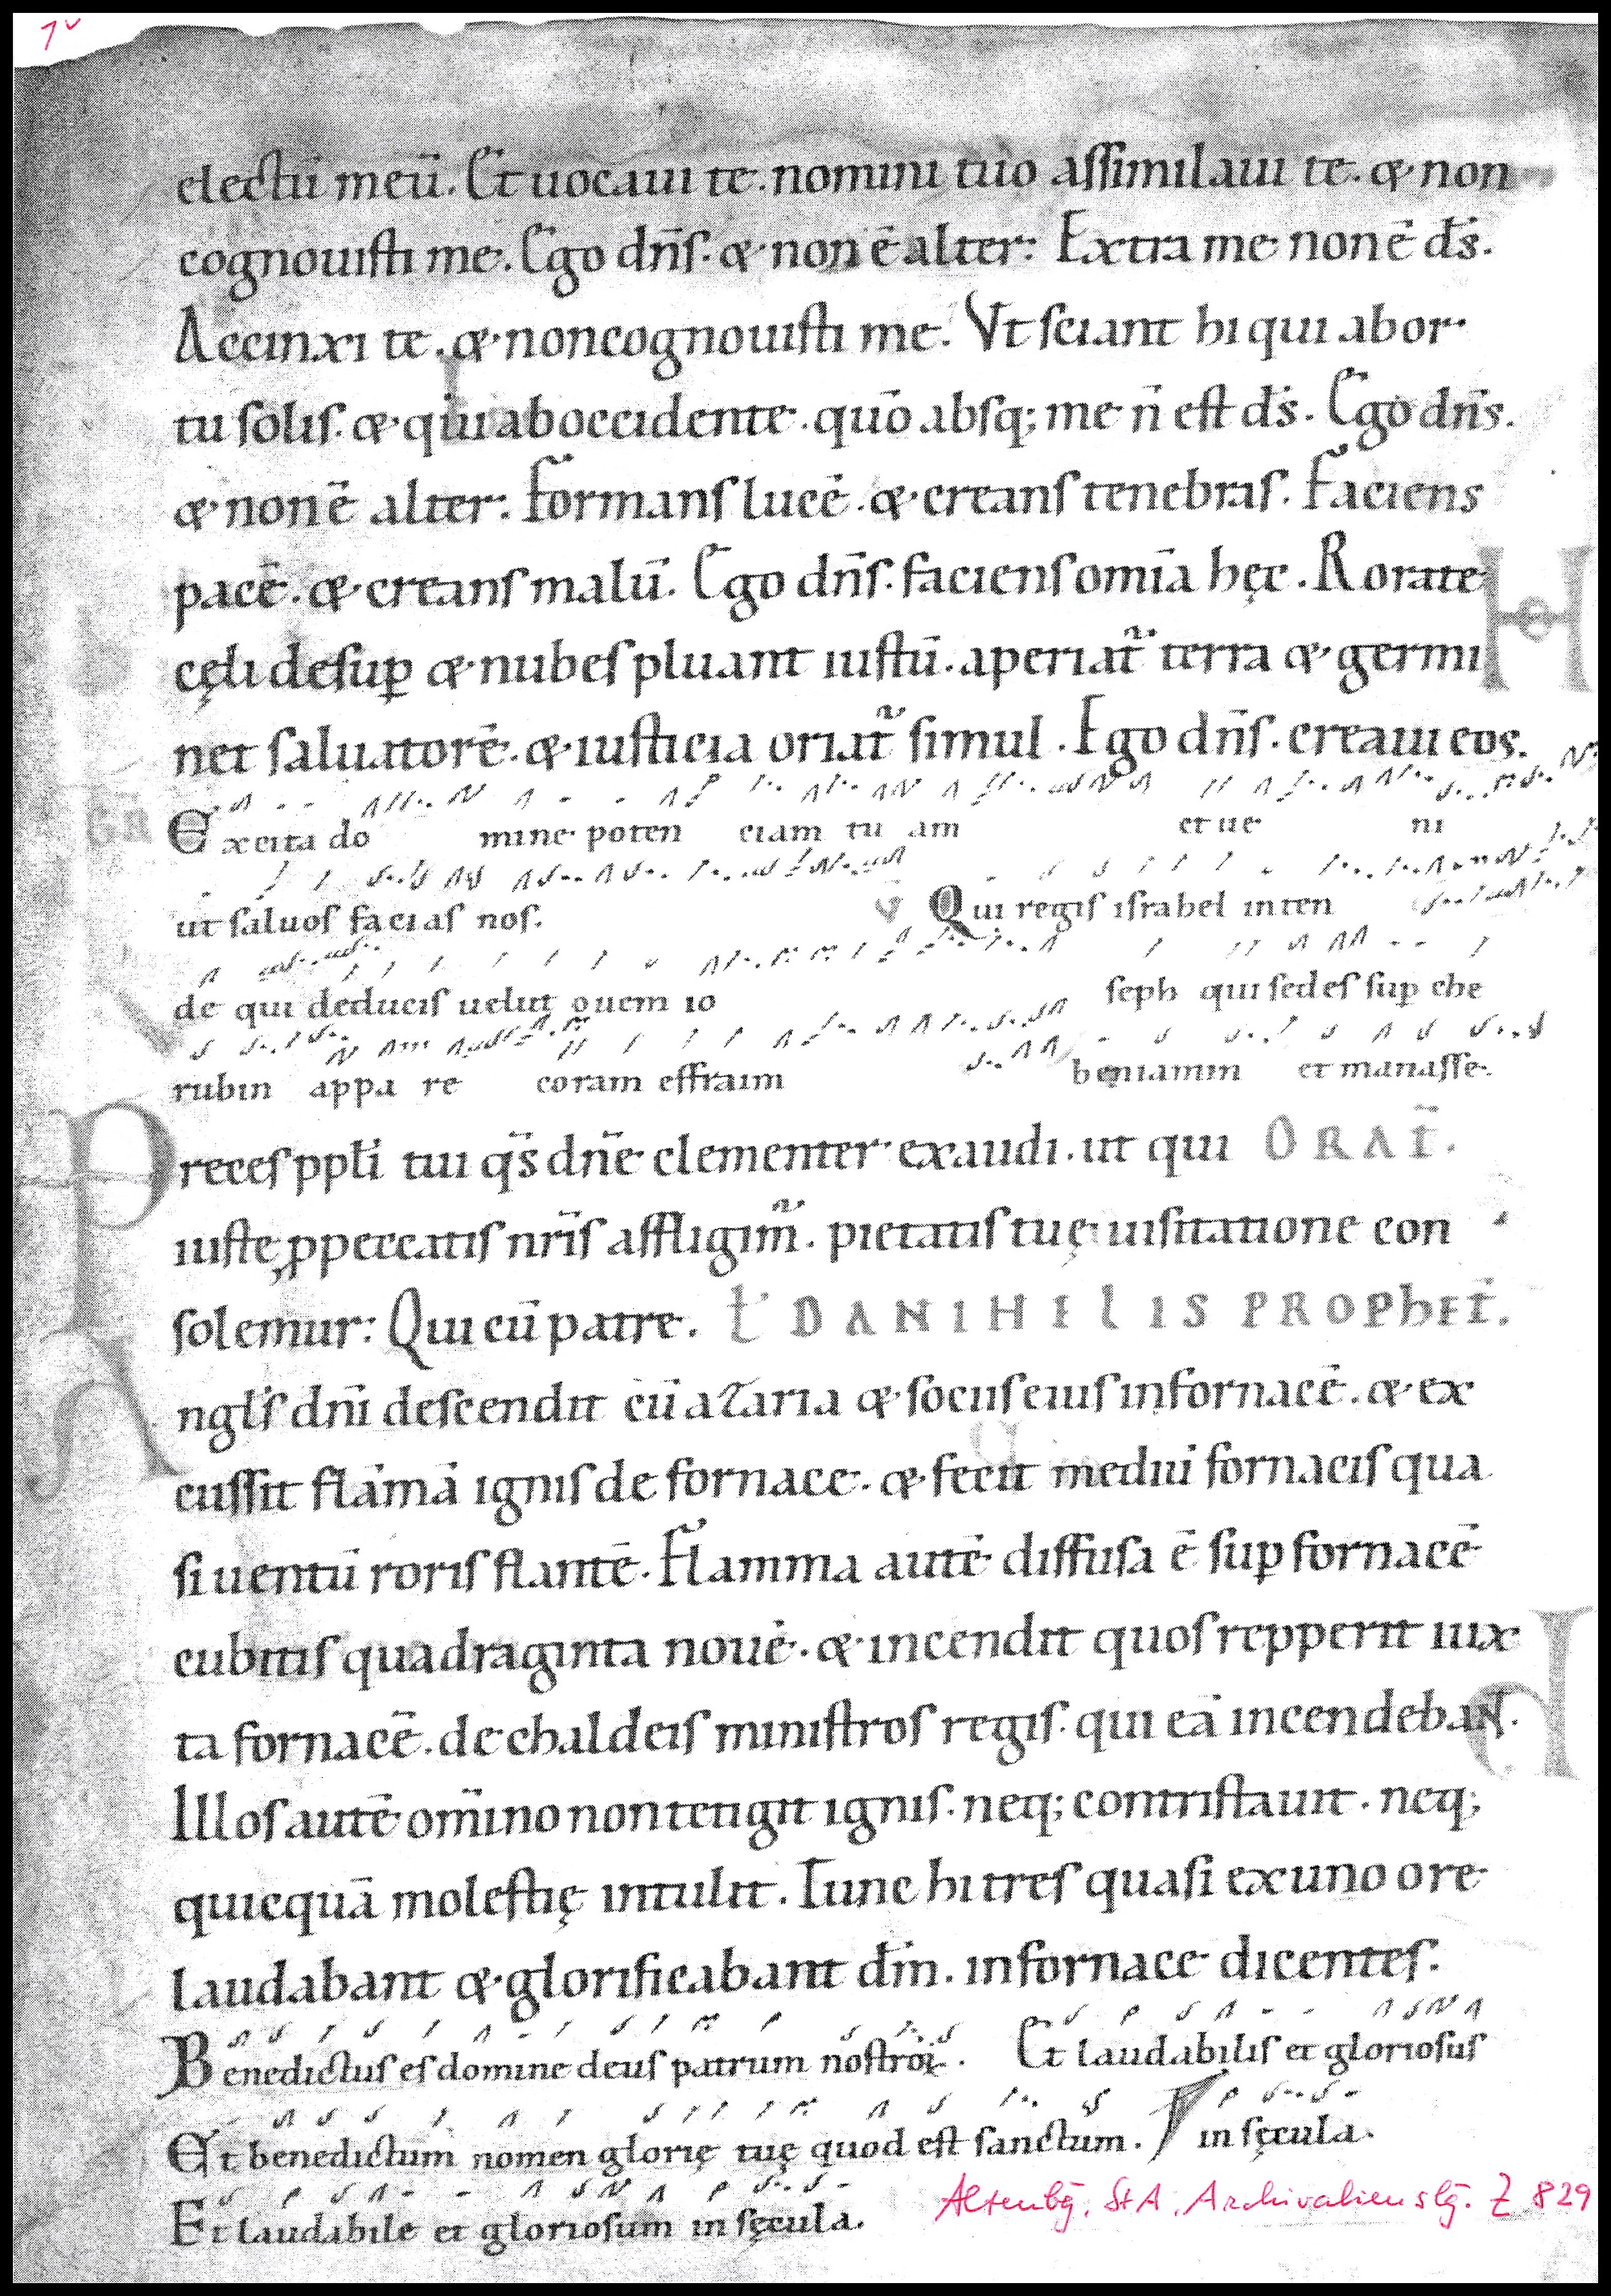 1v
electū meū. Et uocaui te. nomini tuo assimilaui te. & non
cognouisti me. Ego dn̄s. & non ē alter: Extra me non ē ds̄.
Accinxi te. & non cognouisti me. Vt sciant hi qui abor
tu solis. & qui ab occidente. quō absq; me n̄ est ds̄. Ego dn̄s.
& non ē alter: Formans lucē. & creans tenebras. Faciens
pacē. & creans malū. Ego dn̄s. faciens om̄ia hęc. Rorate
cęli desup̱ & nubes pluant iustū. aperiat᷑ terra & germi
net saluatorē. & iusticia oriat᷑ simul. Ego dn̄s. creaui eos.
GR Excita do mine poten ciam tu am et ue ni
ut saluos facias nos. V̄ Qui regis israhel inten
de qui deducis uelut ouem io seph qui sedes sup̱ che
rubin appa re coram effraim beniamin et manasse.
Preces ppl̄i tui qs̄ dn̄e clementer exaudi. ut qui ORAT̄.
iustę ꝓ peccatis nr̄is affligim᷑. pietatis tuę uisitatione con
solemur: Qui cū patre. Ł DANIHELIS PROPHET̄.
Angl̄s dn̄i descendit cū azaria & sociis eius in fornacē. & ex
cussit flāmā ignis de fornace. & fecit mediū fornacis qua
si uentū roris flantē. Flamma autē diffusa ē sup̱ fornacē
cubitis quadraginta nouē. & incendit quos repperit iux
ta fornacē. de chaldeis ministros regis. qui eā incendebant.
Illos autē om̄ino non tetigit ignis. neq; contristauit. neq;
quicquā molestię intulit. Tunc hi tres quasi ex uno ore
laudabant & glorificabant dm̄. in fornace dicentes.
Benedictus es domine deus patrum nostroꝝ. Et laudabilis et gloriosus
Et benedictum nomen glorię tuę quod est sanctum. in sęcula.
Et laudabile et gloriosum in sęcula.
Altenbg. StA, Archivaliensslg. Z 829